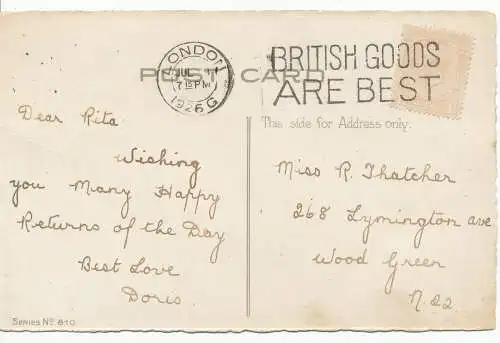 POST CARD
LONDON
JUL
7 15 PM
1926 G
BRITISH GOODS
ARE BEST
This side for Address only.
Dear Rita
Wishing
you Many Happy
Returns of the Day
Best Love
Doris
Miss R. Thatcher
268 Lymington ave
Wood Green
N. 22
Series No. 810